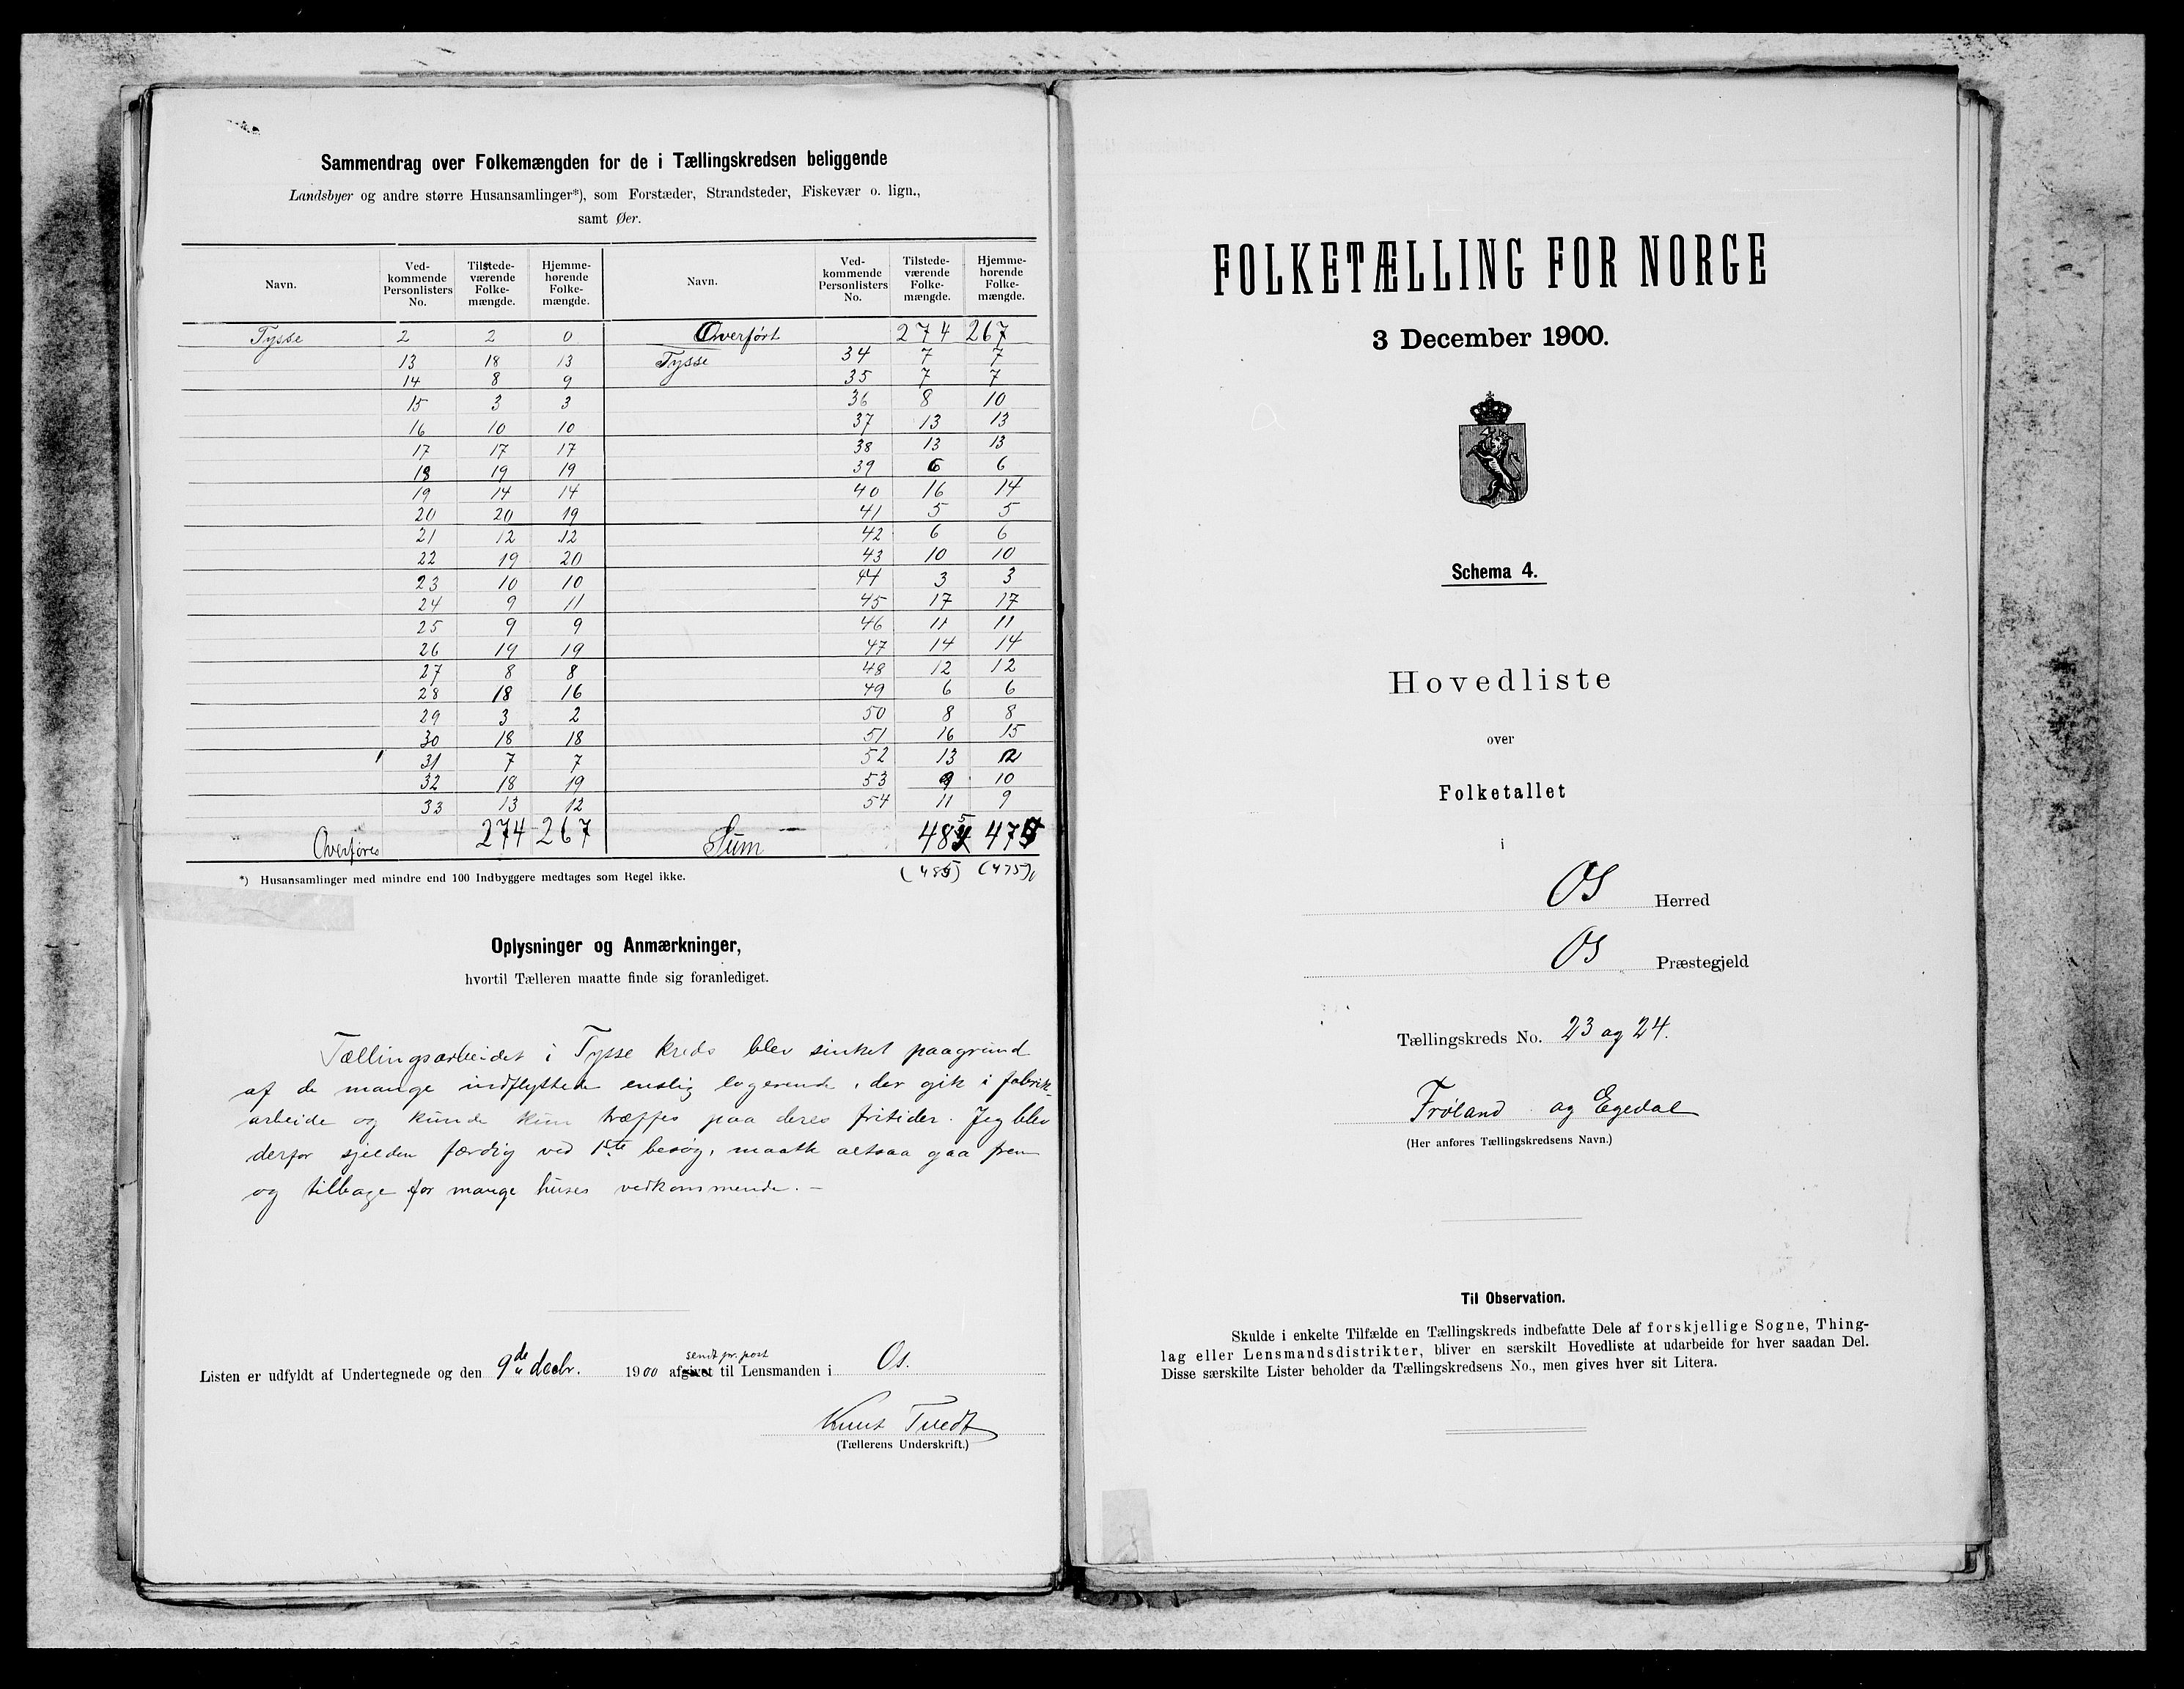 Sammendrag over Folkemængden for de i Tællingskredsen beliggende
Landsbyer og andre større Husansamlinger*), som Forstæder, Strandsteder, Fiskevær o. lign.,
samt Øer.
Navn. Ved-kommende Personlisters No. Tilstede-værende Folke-mængde. Hjemme-hørende Folke-mængde. Navn. Ved-kommende Personlisters No. Tilstede-værende Folke-mængde. Hjemme-hørende Folke-mængde.
Tysse 2 2 0 Overført 274 267
13 18 13 Tysse 34 7 7
14 8 9 35 7 7
15 3 3 36 8 10
16 10 10 37 13 13
17 17 17 38 13 13
18 19 19 39 6 6
19 14 14 40 16 14
20 20 19 41 5 5
21 12 12 42 6 6
22 19 20 43 10 10
23 10 10 44 3 3
24 9 11 45 17 17
25 9 9 46 11 11
26 19 19 47 14 14
27 8 8 48 12 12
28 18 16 49 6 6
29 3 2 50 8 8
30 18 18 51 16 15
31 7 7 52 13 12
32 18 19 53 9 10
33 13 12 54 11 9
Overføres 274 267 Sum 485 475
(485) (475)
*) Husansamlinger med mindre end 100 Indbyggere medtages som Regel ikke.
Oplysninger og Anmærkninger,
hvortil Tælleren maatte finde sig foranlediget.
Tællingsarbeidet i Tysse kreds blev sinket paagrund
af de mange indflyttede enslig logerende, der gik i fabrik-
arbeide og kunde kun træffes paa deres fritider. Jeg blev
derfor sjelden færdig ved 1ste besøg, maatte altsaa gaa frem
og tilbage for mange huses vedkommende. –
Listen er udfyldt af Undertegnede og den 9de decbr. 1900 afgivet sendt pr. post til Lensmanden i Os.
Knut Tvedt
(Tællerens Underskrift.)
FOLKETÆLLING FOR NORGE
3 December 1900.
Schema 4.
Hovedliste
over
Folketallet
i
Os Herred
Os Præstegjeld
Tællingskreds No. 23 og 24.
Frøland og Egedal
(Her anføres Tællingskredsens Navn.)
Til Observation.
Skulde i enkelte Tilfælde en Tællingskreds indbefatte Dele af forskjellige Sogne, Thing-
lag eller Lensmandsdistrikter, bliver en særskilt Hovedliste at udarbeide for hver saadan Del.
Disse særskilte Lister beholder da Tællingskredsens No., men gives hver sit Litera.